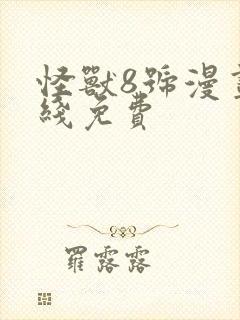 怪獸8號漫
綫免費
羅露露